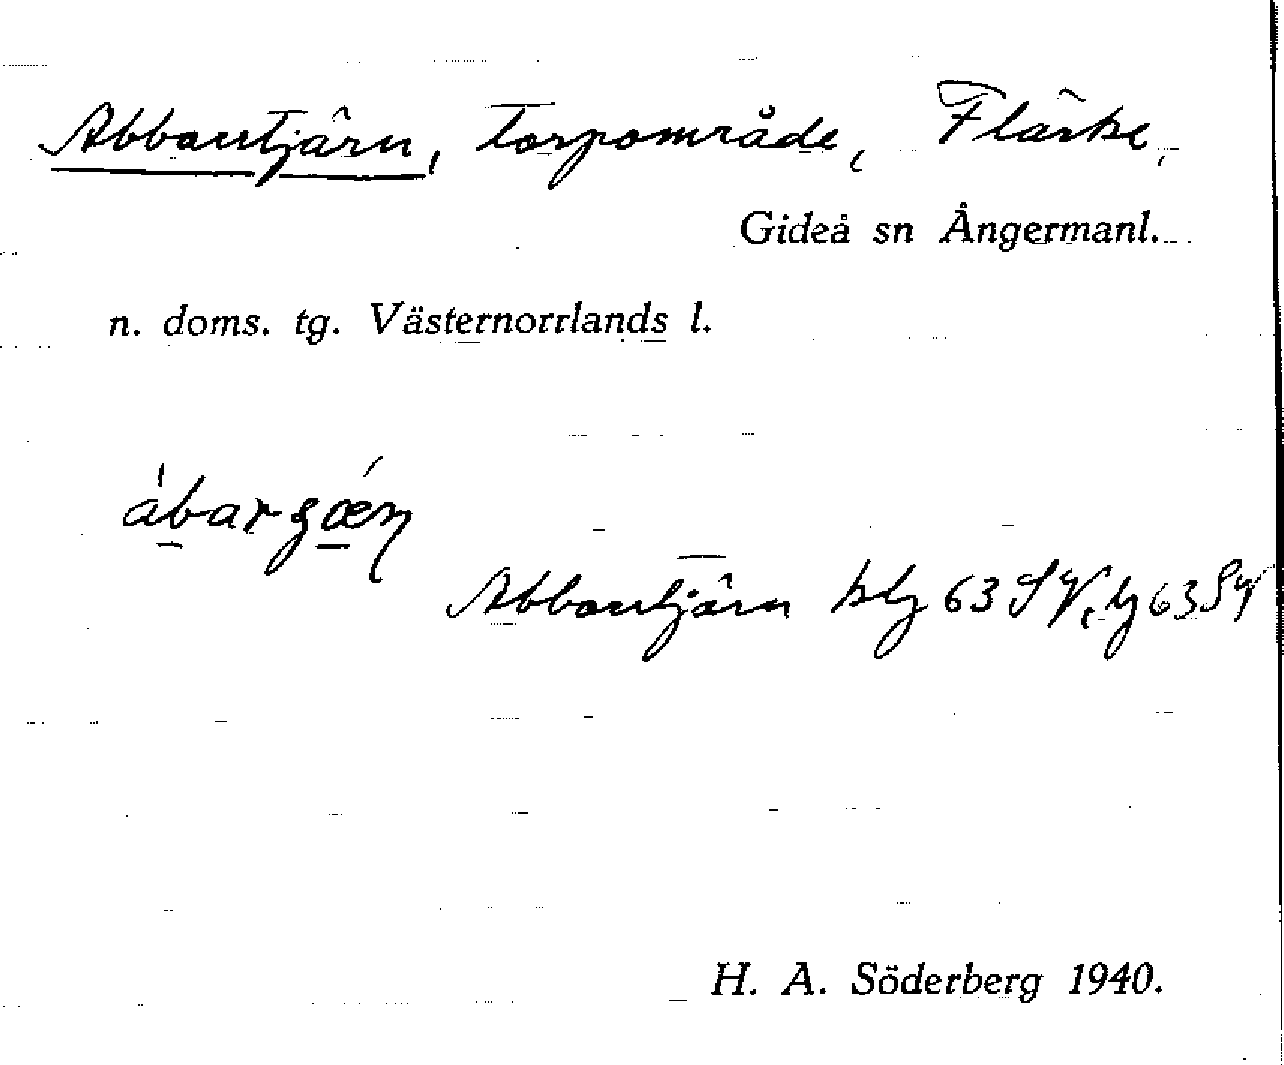 Abbortjärn, Torpområde, Flärke,
Gideå sn Ångermanl.
n. doms. tg. Västernorrlands l.
Abbortjärn blz 63
H. A. Söderberg 1940.